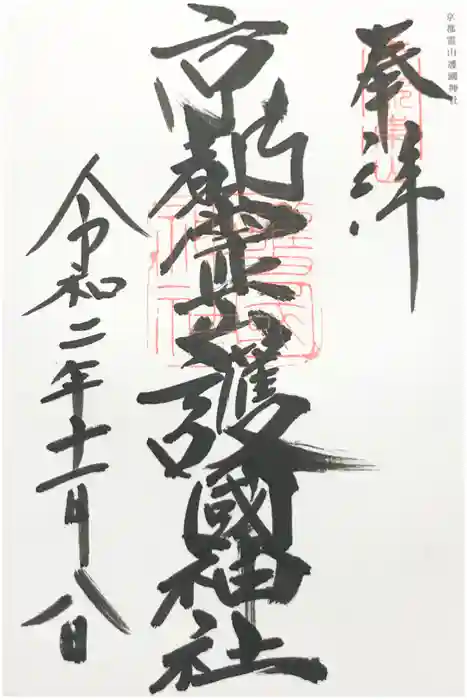 京都霊山護國神社
奉拝
京都霊山護國神社
護國神社
令和二年十一月八日